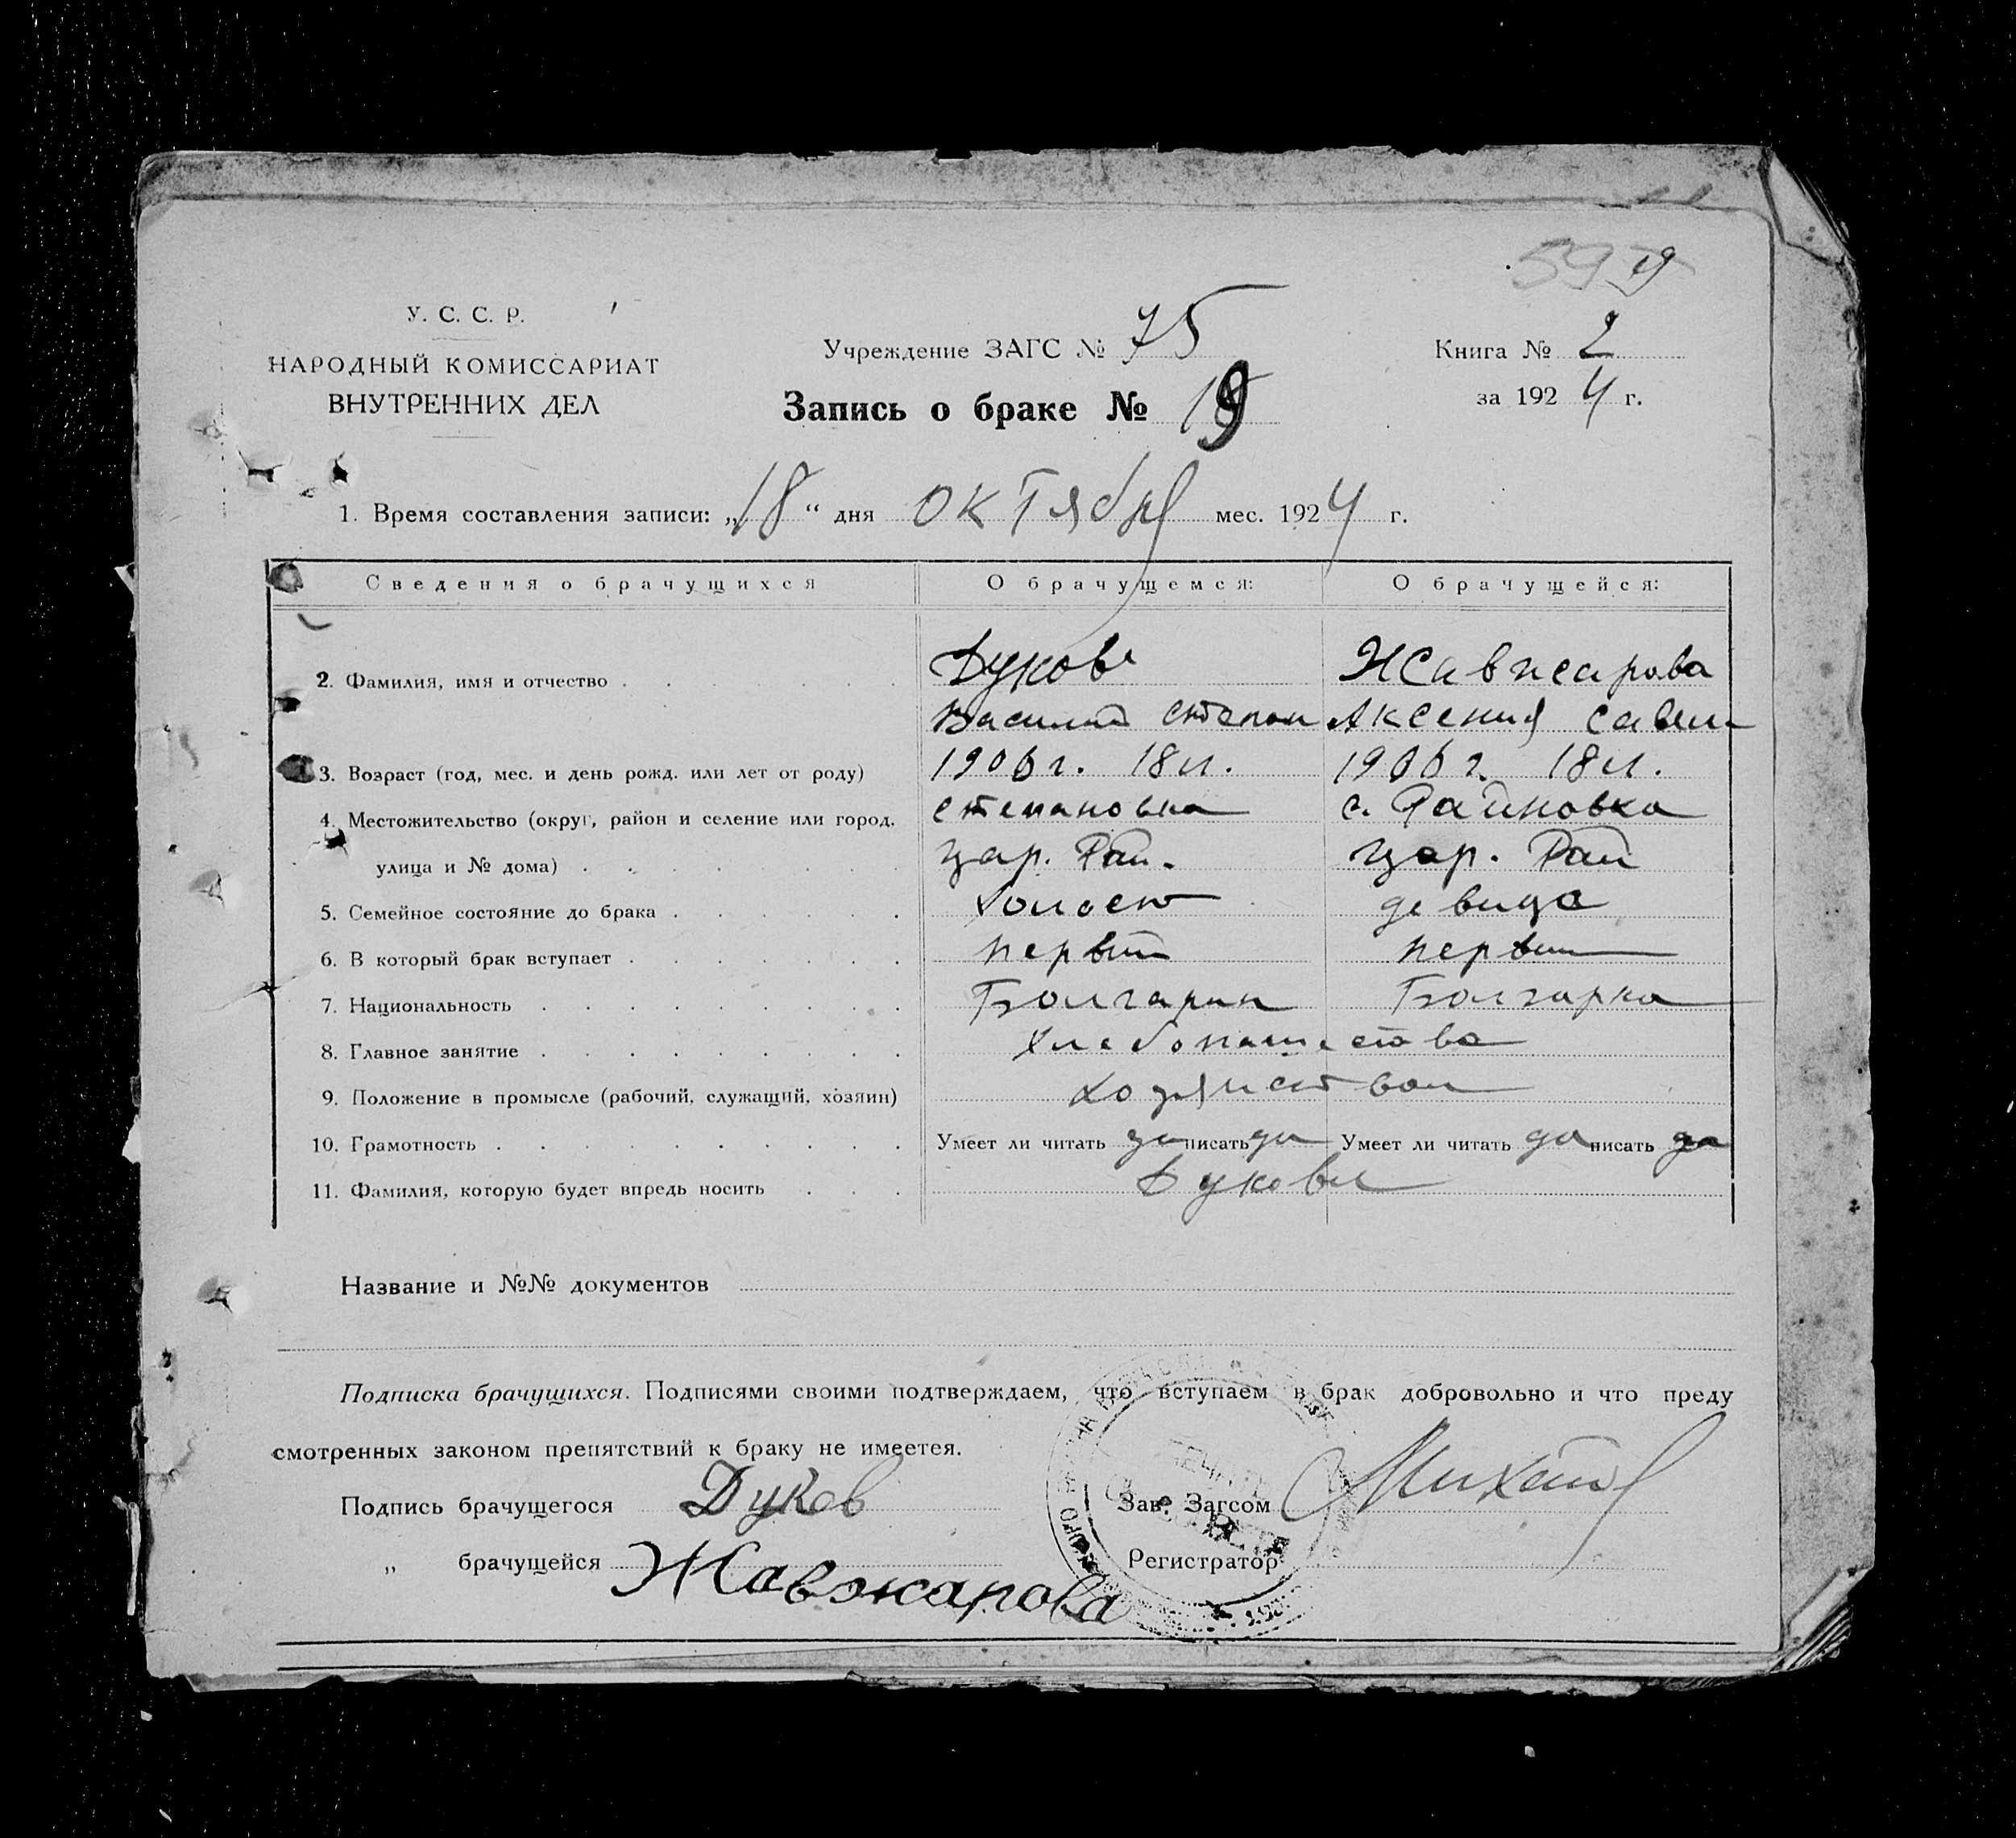 У. С. С. Р.
НАРОДНЫЙ КОМИССАРИАТ
ВНУТРЕННИХ ДЕЛ
Учреждение ЗАГС № 75
Запись о браке № 19
Книга № 2
за 1924 г.
1. Время составления записи: „18“ дня октября мес. 1924 г.
Сведения о брачущихся О брачущемся: О брачущейся:
2. Фамилия, имя и отчество Дуков Жавжарова
Василий Степан Аксения Савел
3. Возраст (год, мес. и день рожд. или лет от роду) 1906 г. 18 л. 1906 г. 18 л.
4. Местожительство (округ, район и селение или город, Степановка с. Райновка
улица и № дома) Цар. Рай. Цар. Рай
5. Семейное состояние до брака холост девица
6. В который брак вступает первый первый
7. Национальность Болгарин Болгарка
8. Главное занятие Хлебопашества
9. Положение в промысле (рабочий, служащий, хозяин)
10. Грамотность Умеет ли читать да писать да Умеет ли читать да писать да
11. Фамилия, которую будет впредь носить Дуковы
Название и №№ документов
Подписка брачущихся. Подписями своими подтверждаем, что вступаем в брак добровольно и что преду
смотренных законом препятствий к браку не имеется.
Подпись брачущегося Дуков Зав. Загсом
„ брачущейся Жавжарова Регистратор